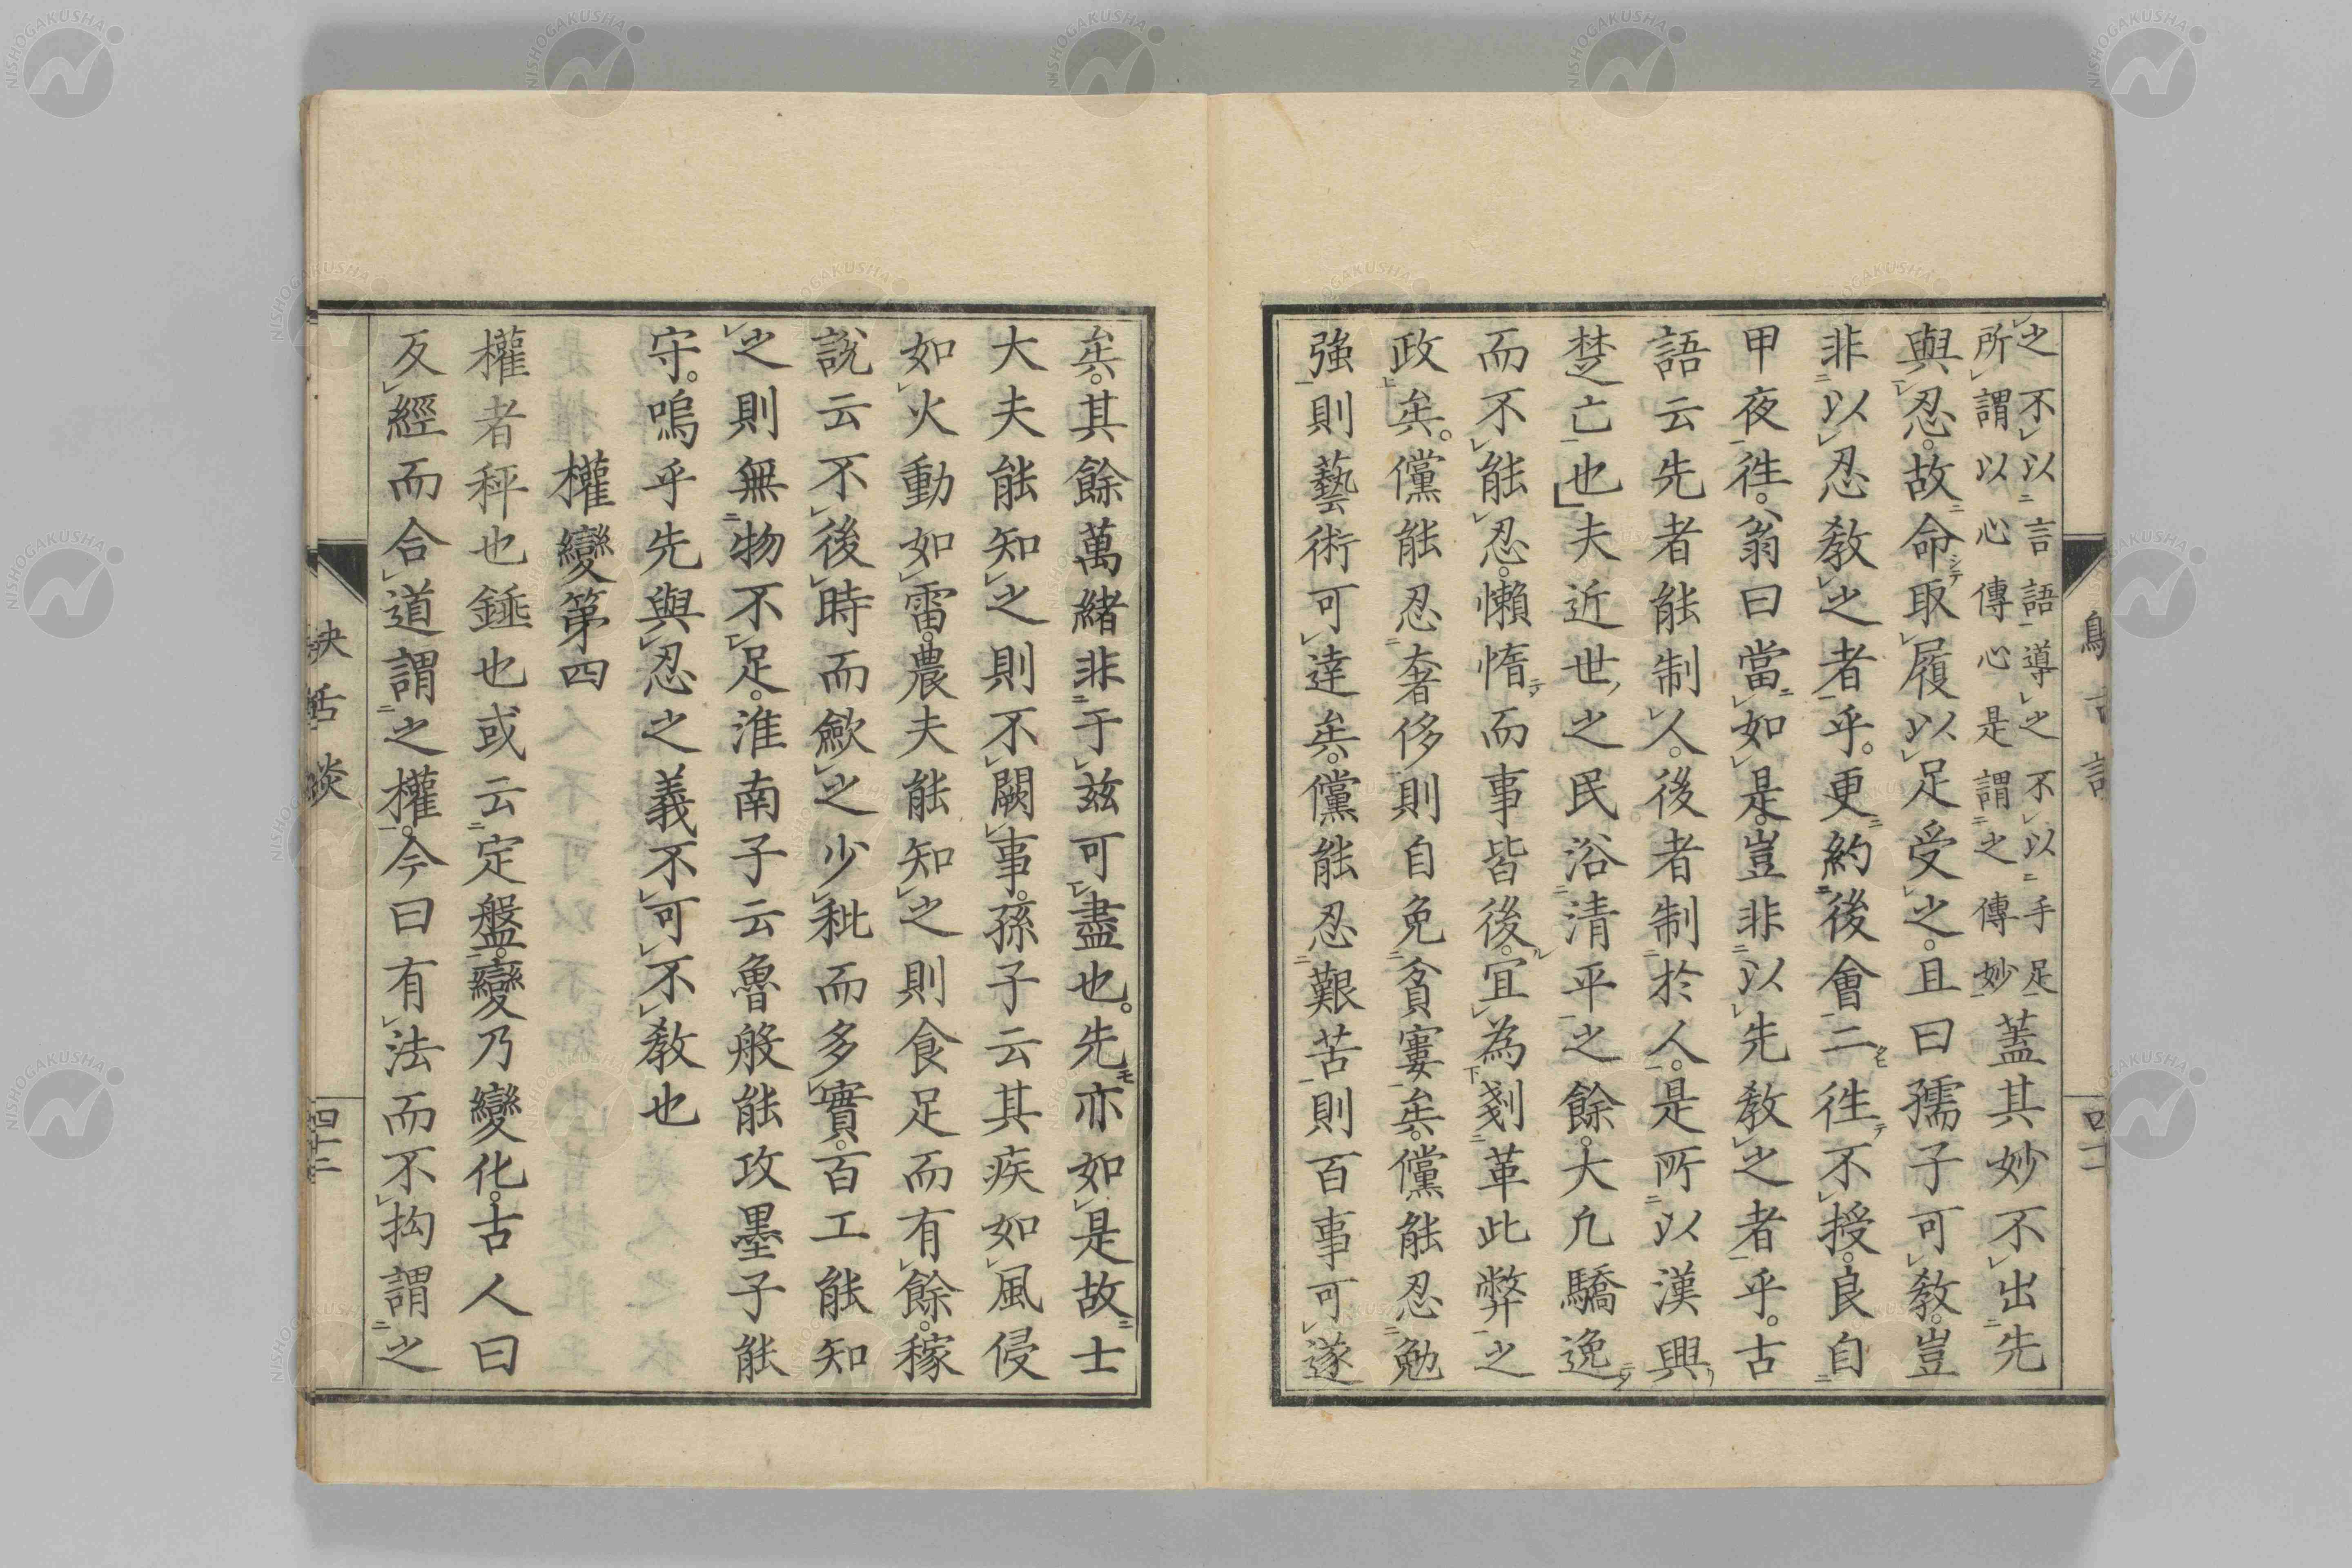 之不以言語導之不以手足
所謂以心傳心是謂之傳妙
蓋其妙不出先
與忍。故命取履以足受之。且曰孺子可教。豈
非以忍教之者乎。更約後會二徃不授。良自
甲夜徃。翁曰當如是。豈非以先教之者乎。古
語云先者能制人。後者制於人。是所以漢興
楚亡也」夫近世之民浴清平之餘。大凢驕逸
而不能忍。懶惰而事皆後。宜為剗革此弊之
政矣。儻能忍奢侈則自免貧寠矣。儻能忍勉
強則藝術可達矣。儻能忍艱苦則百事可遂
矣。其餘萬緒非于茲可盡也。先亦如是故士
大夫能知之則不闕事。孫子云其疾如風侵
如火動如雷。農夫能知之則食足而有餘。稼
說云不後時而歛之少秕而多實。百工能知
之則無物不足。淮南子云魯般能攻墨子能
守。嗚乎先與忍之義不可不教也
權變第四
權者秤也錘也或云定盤。變乃變化。古人曰
反經而合道謂之權。今曰有法而不拘謂之